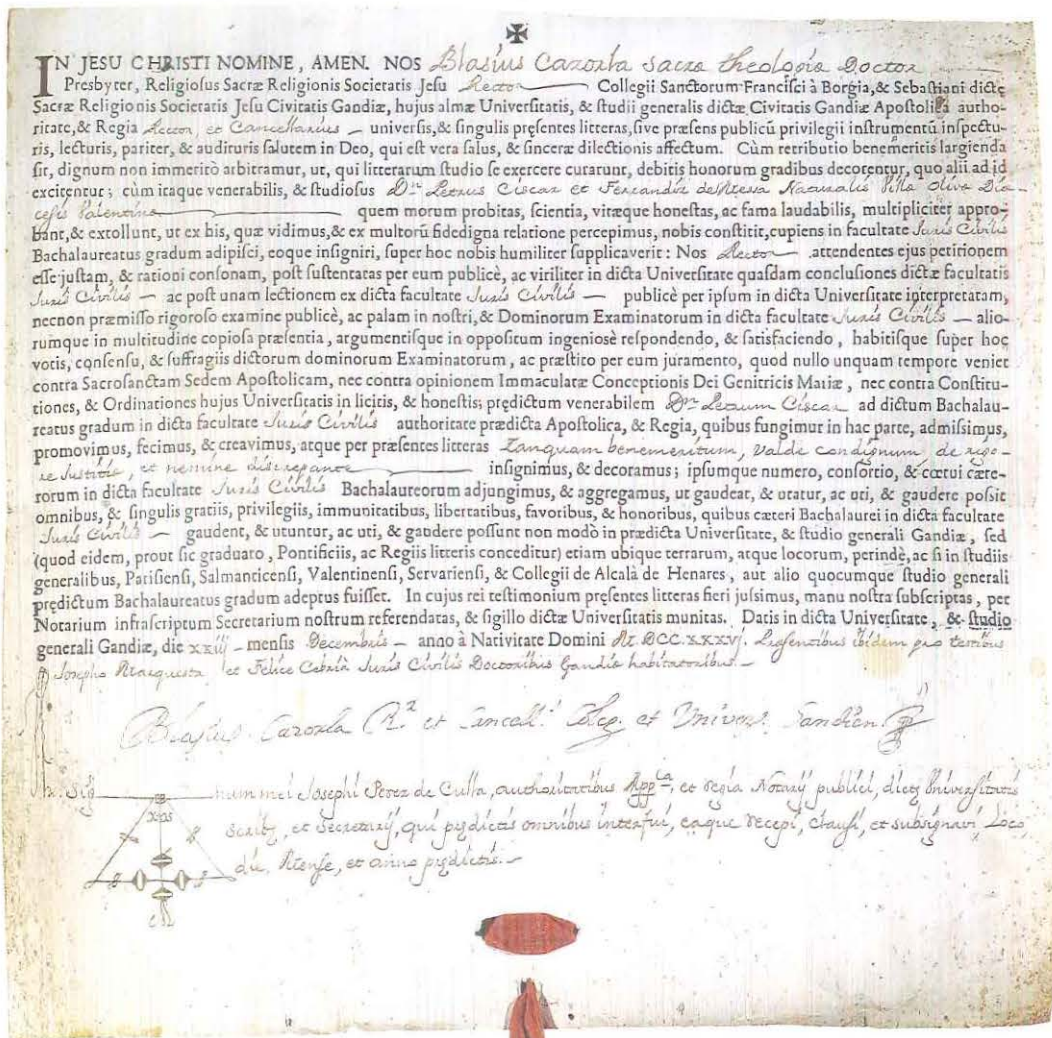 ✠
IN JESU CHRISTI NOMINE, AMEN. NOS Blasius Cazorla Sacræ theologiæ Doctor
Presbyter, Religiosus Sacræ Religionis Societatis Jesu Rector Collegii Sanctorum Francisci à Borgia, & Sebastiani dictę
Sacræ Religionis Societatis Jesu Civitatis Gandiæ, hujus almæ Universitatis, & studii generalis dictæ Civitatis Gandiæ Apostolica autho-
ritate, & Regia Rector, et Cancellarius – universis, & singulis pręsentes litteras, sive præsens publicũ privilegii instrumentũ inspectu-
ris, lecturis, pariter, & audituris salutem in Deo, qui est vera salus, & sinceræ dilectionis affectum. Cùm retributio benemeritis largienda
sit, dignum non immeritò arbitramur, ut, qui litterarum studio se exercere curarunt, debitis honorum gradibus decorentur, quo alii ad id
excitentur; cùm itaque venerabilis, & studiosus Dn. Petrus Ciscar et Ferrandiz de Mesa Naturalis Villæ Oliva Diæ-
cesis Valentina quem morum probitas, scientia, vitæque honestas, ac fama laudabilis, multipliciter appro-
bant, & extollunt, ut ex his, quæ vidimus, & ex multorũ fidedigna relatione percepimus, nobis constitit, cupiens in facultate Juris Civilis
Bachalaureatus gradum adipisci, eoque insigniri, super hoc nobis humiliter supplicaverit: Nos Rector attendentes ejus petitionem
esse justam, & rationi consonam, post sustentatas per eum publicè, ac viriliter in dicta Universitate quasdam conclusiones dictæ facultatis
Juris Civilis – ac post unam lectionem ex dicta facultate Juris Civilis – publicè per ipsum in dicta Universitate interpretatam,
necnon præmisso rigoroso examine publicè, ac palam in nostri, & Dominorum Examinatorum in dicta facultate Juris Civilis – alio-
rumque in multitudine copiosa præsentia, argumentisque in oppositum ingeniosè respondendo, & satisfaciendo, habitisque super hoc
votis, consensu, & suffragiis dictorum dominorum Examinatorum, ac præstito per eum juramento, quod nullo unquam tempore veniet
contra Sacrosanctam Sedem Apostolicam, nec contra opinionem Immaculatæ Conceptionis Dei Genitricis Mariæ, nec contra Constitu-
tiones, & Ordinationes hujus Universitatis in licitis, & honestis; prędictum venerabilem Dn. Petrum Ciscar ad dictum Bachalau-
reatus gradum in dicta facultate Juris Civilis authoritate prædicta Apostolica, & Regia, quibus fungimur in hac parte, admisimus,
promovimus, fecimus, & creavimus, atque per præsentes litteras tanquam benemeritum, valde condignum, de rigo-
re Justitiæ, et nemine discrepante insignimus, & decoramus; ipsumque numero, consortio, & cœtui cæte-
rorum in dicta facultate Juris Civilis Bachalaureorum adjungimus, & aggregamus, ut gaudeat, & utatur, ac uti, & gaudere possit
omnibus, & singulis gratiis, privilegiis, immunitatibus, libertatibus, favoribus, & honoribus, quibus cæteri Bachalaurei in dicta facultate
Juris Civilis – gaudent, & utuntur, ac uti, & gaudere possunt non modò in prædicta Universitate, & studio generali Gandiæ, sed
(quod eidem, prout sic graduato, Pontificiis, ac Regiis litteris conceditur) etiam ubique terrarum, atque locorum, perindè, ac si in studiis
generalibus, Parisiensi, Salmanticensi, Valentinensi, Servariensi, & Collegii de Alcalà de Henares, aut alio quocumque studio generali
prędictum Bachalaureatus gradum adeptus fuisset. In cujus rei testimonium pręsentes litteras fieri jussimus, manu nostra subscriptas, per
Notarium infrascriptum Secretarium nostrum referendatas, & sigillo dictæ Universitatis munitas. Datis in dicta Universitate, & studio
generali Gandiæ, die xxiij – mensis Decembris – anno à Nativitate Domini M.DCC.XXXVJ. Præsentibus ibidem pro testibus
Josepho et Felice Cebrià Juris Civilis Doctoribus Gandiæ habitatoribus. –
Blasius Cazorla R.r et Cancell.s Coleg. et Univers. Gandien.
Sig num mei Josephi Perez de Culla, authoritatibus App.ca, et regia Notarij publici, dictę Universitatis
scribę, et Secretarij, qui prędictis omnibus interfui, eaque recepi, clausi, et subsignavi, Loco,
die, Mense, et anno prędictis. –